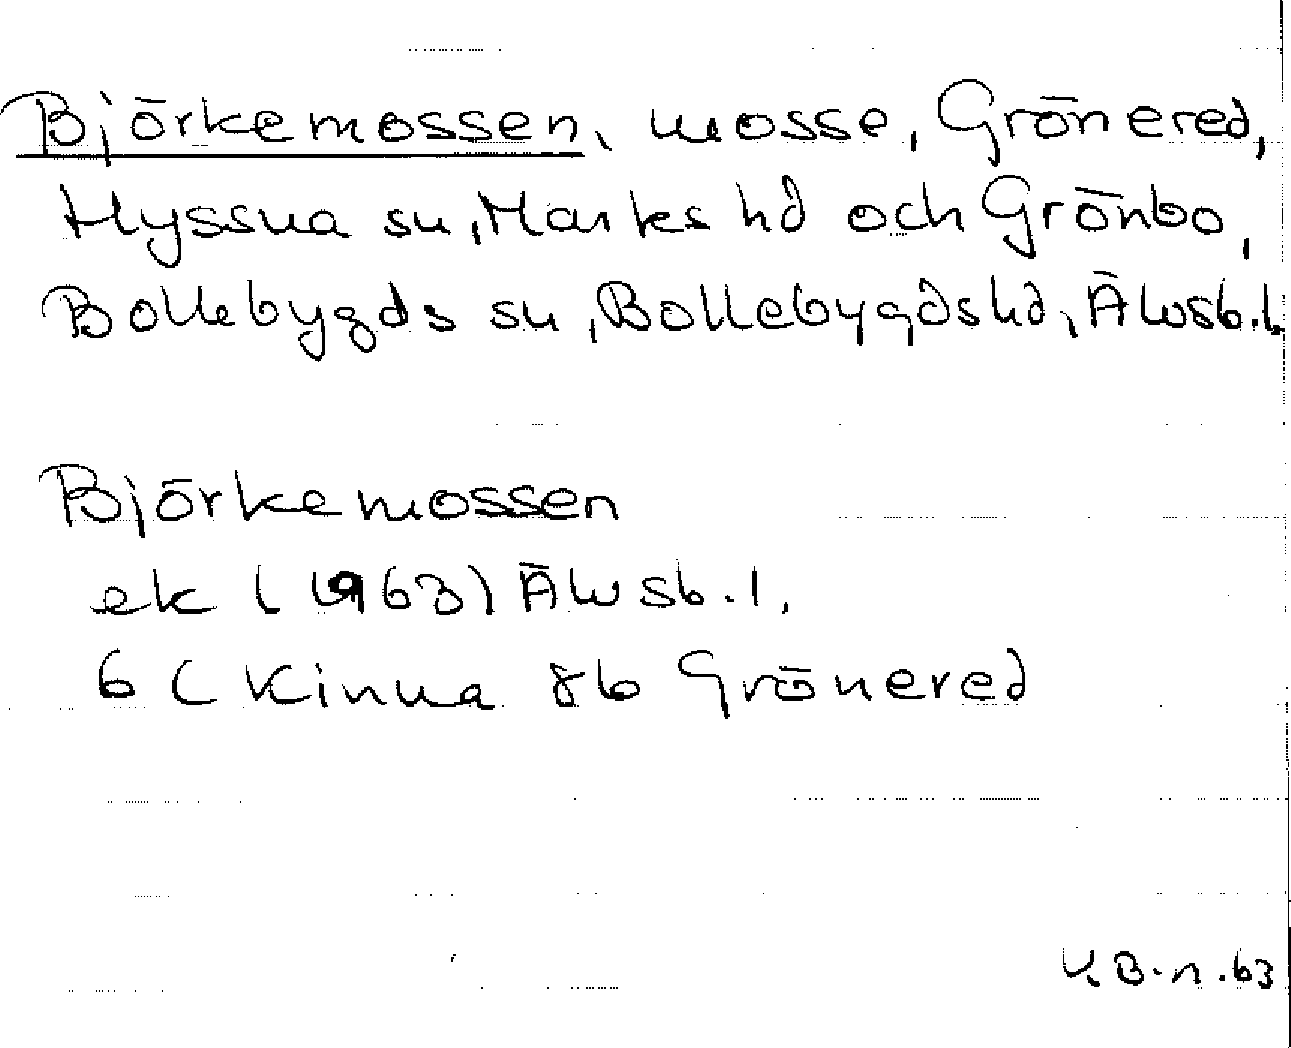 Björkemossen, mosse, Grönered,
Hyssna sn, Marks hd och Grönbo,
Bollebygds sn, Bollebygds hd, Älvsb. l.
Björkemossen
ek (1963) Älvsb. l.
6 C Kinna 8b Grönered
K.B-n. 63